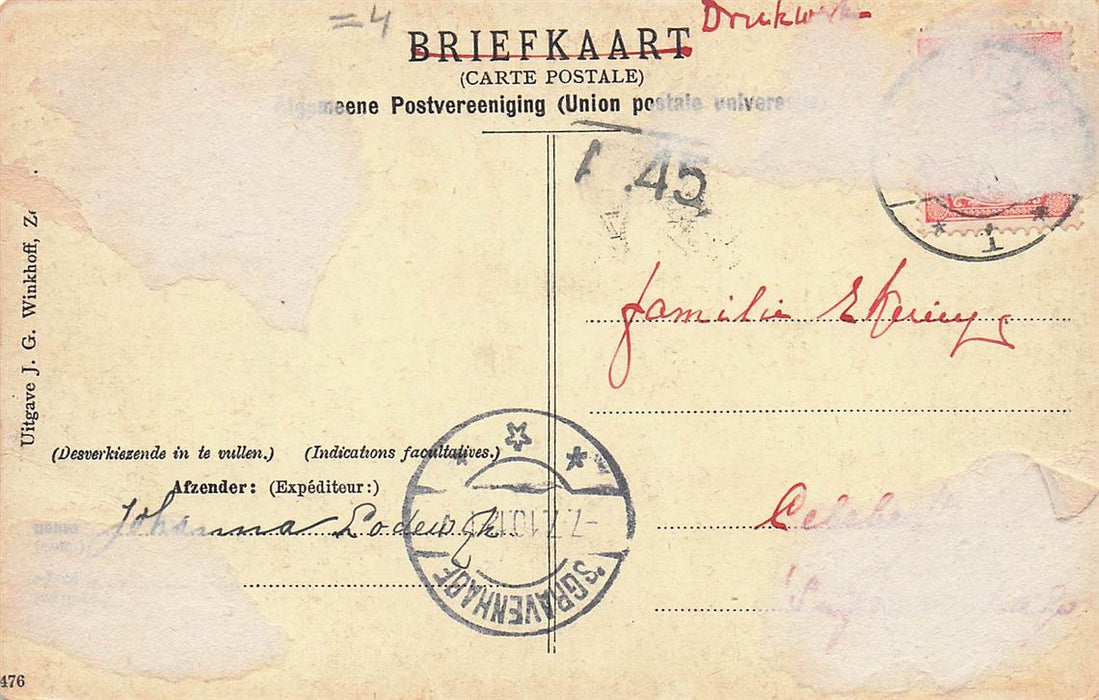 =4
Drukwerk
BRIEFKAART
(CARTE POSTALE)
Algemeene Postvereeniging (Union postale universelle)
45
Uitgave J. G. Winkhoff,
familie
(Desverkiezende in te vullen.) (Indications facultatives.)
Afzender: (Expéditeur:)
Johanna Lodewijk
-7.7.10.12
'SGRAVENHAGE
1
476